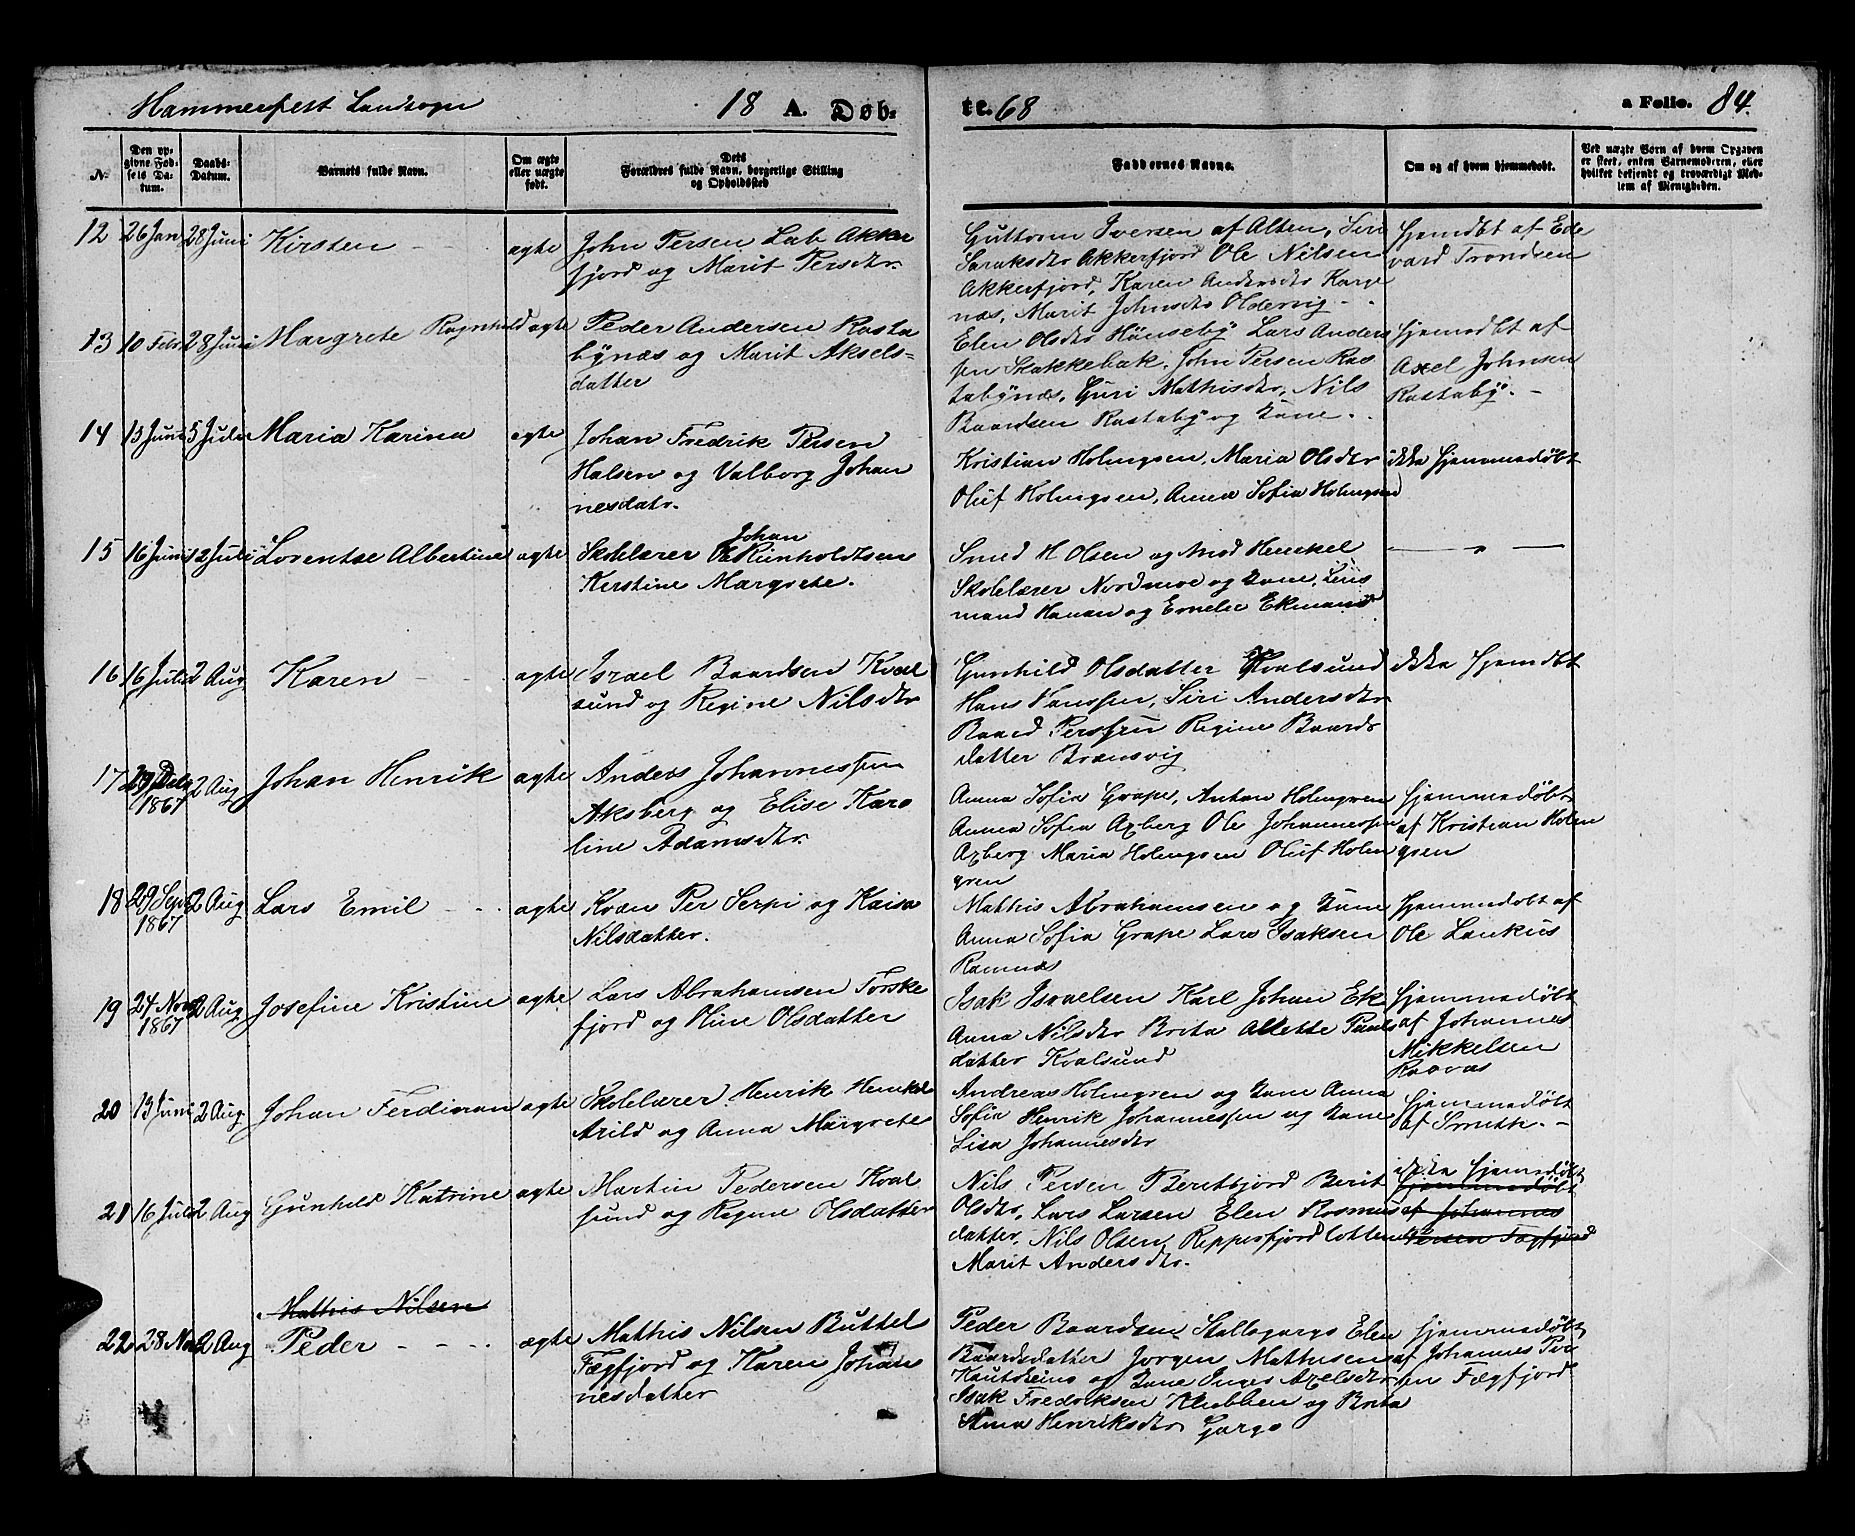 Hammerfest Landsogn 18 A. Døb-
te. 68 a Folio. 84.
No.
Den op-
givne Fød-
sels Da-
tum.
Daabs-
Datum.
Barnets fulde Navn.
Om ægte
eller uægte
født.
Dets
Forældres fulde Navn, borgerlige Stilling
og Opholdssted
Faddernes Navne.
Om og af hvem hjemmedøbt.
Ved uægte Børn af hvem Opgaven
er skeet, enten Barnemoderen, eller
hvilket bekjendt og troværdigt Med-
lem af Menigheden.
12 26 Jan 28 Juni Kirsten ægte
John Persen Lab Akker
fjord og Marit Persdtr.
Guttorm Iversen af Alten, Siri
Saraksdtr Akkerfjord Ole Nilsen
Akkerfjord, Karen Andersdtr Karge
næs, Marit Johnsdtr Oldervig
hjemdbt af Ed
vard Trondsen
13 10 Febr 28 Juni Margrete Ragnhild ægte
Peder Andersen Rasta
bynæs og Marit Aksels=
datter
Elen Olsdtr Hønseby Lars Ander
sen Skakkebak. John Persen Ras
tabynæs, Guri Mathisdtr, Nils
Baardsen Rastaby og Kone.
hjemdbt af
Axel Johnsen
Rastaby.
14 13 Juni 5 Juli Maria Karina ægte
Johan Fredrik Persen
Halsen og Valborg Johan
nesdatr.
Kristian Holmgsen, Maria Olsdtr
Oluf Holmgsen, Anna Sofia Holmgsen
ikke hjemmedøbt
15 16 Juni 12 Juli Lorentse Albertine ægte
Johan
Skolelærer Ole Reinholdtsen
Kerstine Margrete.
Smed H Olsen og Mad Henckel
Skolelærer Nordmoe og Kone, Lens
mand Hanan og Emelie Ekmand
— " —
16 16 Juli 2 Aug Karen ægte
Israel Baardsen Kval
sund og Regine Nilsdtr
Gunhild Olsdatter Kvalsund
Hans Hanssen, Siri Andersdtr
Baard Perssen Regine Baards
datter Brænsvig
ikke hjemdbt
17 29 Dec 1867 2 Aug Johan Henrik ægte
Anders Johannessen
Aksberg og Elise Karo
line Adamsdtr.
Anna Sofia Grape, Anton Holmgren
Anna Sofia Axberg Ole Johannessen
Axberg Maria Holmgsen Oluf Holm
gren
hjemmedøbt
af Kristian Holm
gsen
18 29 Sept 1867 2 Aug Lars Emil ægte
Kvæn Per Serpi og Kaisa
Nilsdatter.
Mathis Abrahamsen og Kone
Anna Sofia Grape Lars Isaksen
Ramnæs
hjemmedøbt af
Ole Lankus
19 24 Nov 1867 2 Aug Josefine Kristine ægte
Lars Abrahamsen Torske
fjord og Oline Olsdatter
Isak Israelsen Karl Johan Ek
Anna Nilsdtr Brita Allette Pauls
datter Kvalsund
hjemmedøbt
af Johannes
Mikkelsen
20 13 Juni 2 Aug Johan Ferdinan ægte
Skolelærer Henrik Henckel
Arild og Anna Margrete
Andreas Holmgren og Kone Anna
Sofia Henrik Johannessen og Kone
Lisa Johannesdtr
hjemmedøbt
af Smith.
21 16 Juli 2 Aug Gunhild Katrine ægte
Martin Pedersen Kval
sund og Regine Olsdatter
Nils Persen Beritfjord Berit
Olsdtr, Lars Larsen Elen Rasmus
datter, Nils Olsen, Repperfjord
Marit Andersdtr.
ikke hjemdøbt
hjemmedøbt
af Johannes
Persen Fægfjord
Mathis Nilsen
22 28 Nov 2 Aug Peder ægte
Mathis Nilsen Buttel
Fægfjord og Karen Johan
nesdatter
Peder Baardsen Stallogargo Elen
Baardsdatter Jorgen Mathisen
Kautokeino og Kone Inger Axelsdtr
Isak Fredriksen Klubben og Brita
Anna Henriksdtr Gargo
hjemmedøbt
af Johannes
Fægfjord